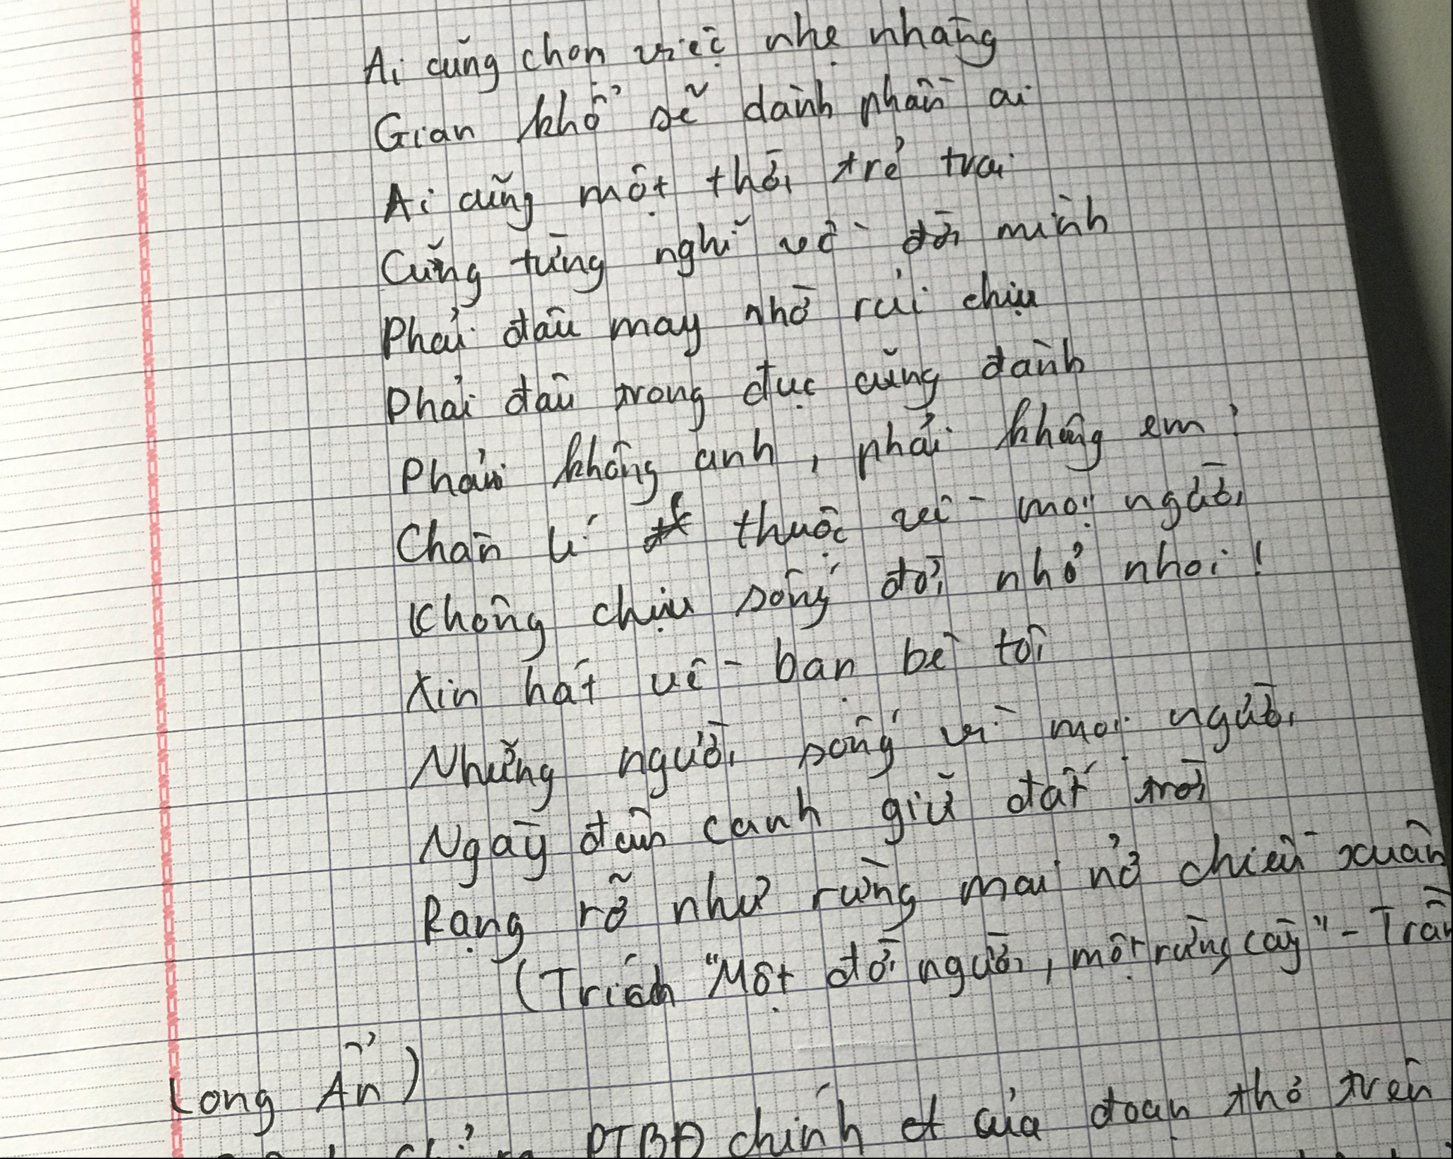 Ai cũng chọn việc nhẹ nhàng
Gian khổ sẽ dành phần ai
Ai cũng một thời trẻ trai
Cũng từng nghĩ về đời mình
Phải đâu may nhờ rủi chịu
Phải đâu trong đục cũng đành
Phải không anh, phải không em?
Chân lí thuộc về mọi người
Không chịu sống đời nhỏ nhoi!
Xin hát về bạn bè tôi
Những người sống vì mọi người
Ngày đêm canh giữ đất trời
Rạng rỡ như rừng mai nở chiều xuân
(Trích "Một đời người, một rừng cây" - Trần
Long Ẩn)
PTBĐ chính của đoạn thơ trên